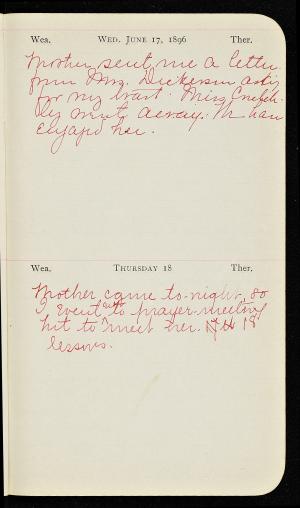 Wea. WED. JUNE 17, 1896 Ther.
Mother sent me a letter
from Mrs. Dickerson
for my Miss
ly went away. We have
enjoyed her.
Wea. THURSDAY 18 Ther.
Mother came to-night, so
I went to prayer-meeting
to meet her. 18
lessons.